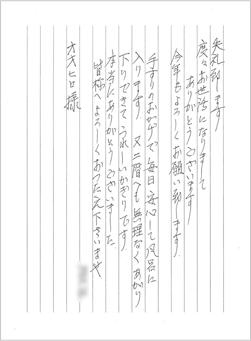 失礼致します
度々お世話になりまして
ありがとうございます
今年もよろしくお願い致します
手すりのおかげで毎日安心して風呂に
入ります 又二階へも無理なくあがり
下りできてうれしいかぎりです
本当にありがとうございました
皆様へよろしくおつたえ下さいませ
オオヒロ様